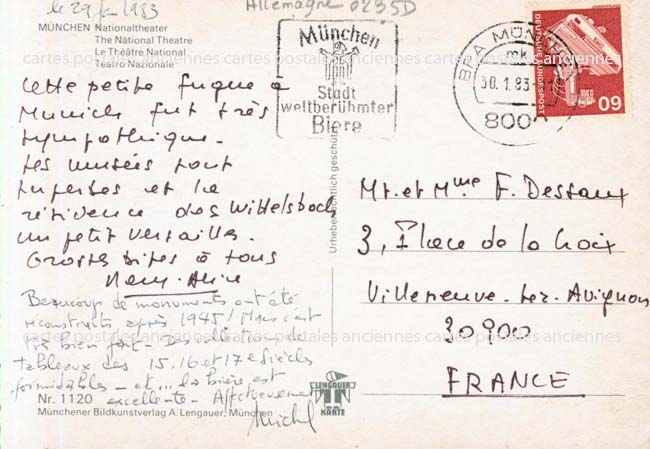 le 29 Jan 1983
Allemagne 0235D
MÜNCHEN Nationaltheater
The National Theatre
Le Théâtre National
Teatro Nazionale
München
Stadt
weltberühmter
Biere
BPA MÜNCHEN
mk
30.1.83
800
DEUTSCHE BUNDESPOST
60
cartes postales anciennes cartes postales anciennes cartes postales anciennes
Cette petite fugue à
Munich fut très
sympathique.
Les musées sont
superbes et la
résidence des Wittelsbach
un petit Versailles.
Grosses bises à tous
Mary-Alice
Beaucoup de monuments ont été
reconstruits après 1945/ Mais c'est
très bien fait - Des collections de
tableaux des 15, 16 et 17e siècles
formidables - et... la bière est
excellente - Affectueusement
Michel
Nr. 1120
Münchener Bildkunstverlag A. Lengauer, München
Urheberrechtlich geschützt
LENGAUER
KARTE
Mr. et Mme F. Dessaux
3, Place de la Croix
Villeneuve-Lez-Avignon
30900
FRANCE
cartes postales anciennes cartes postales anciennes cartes postales anciennes